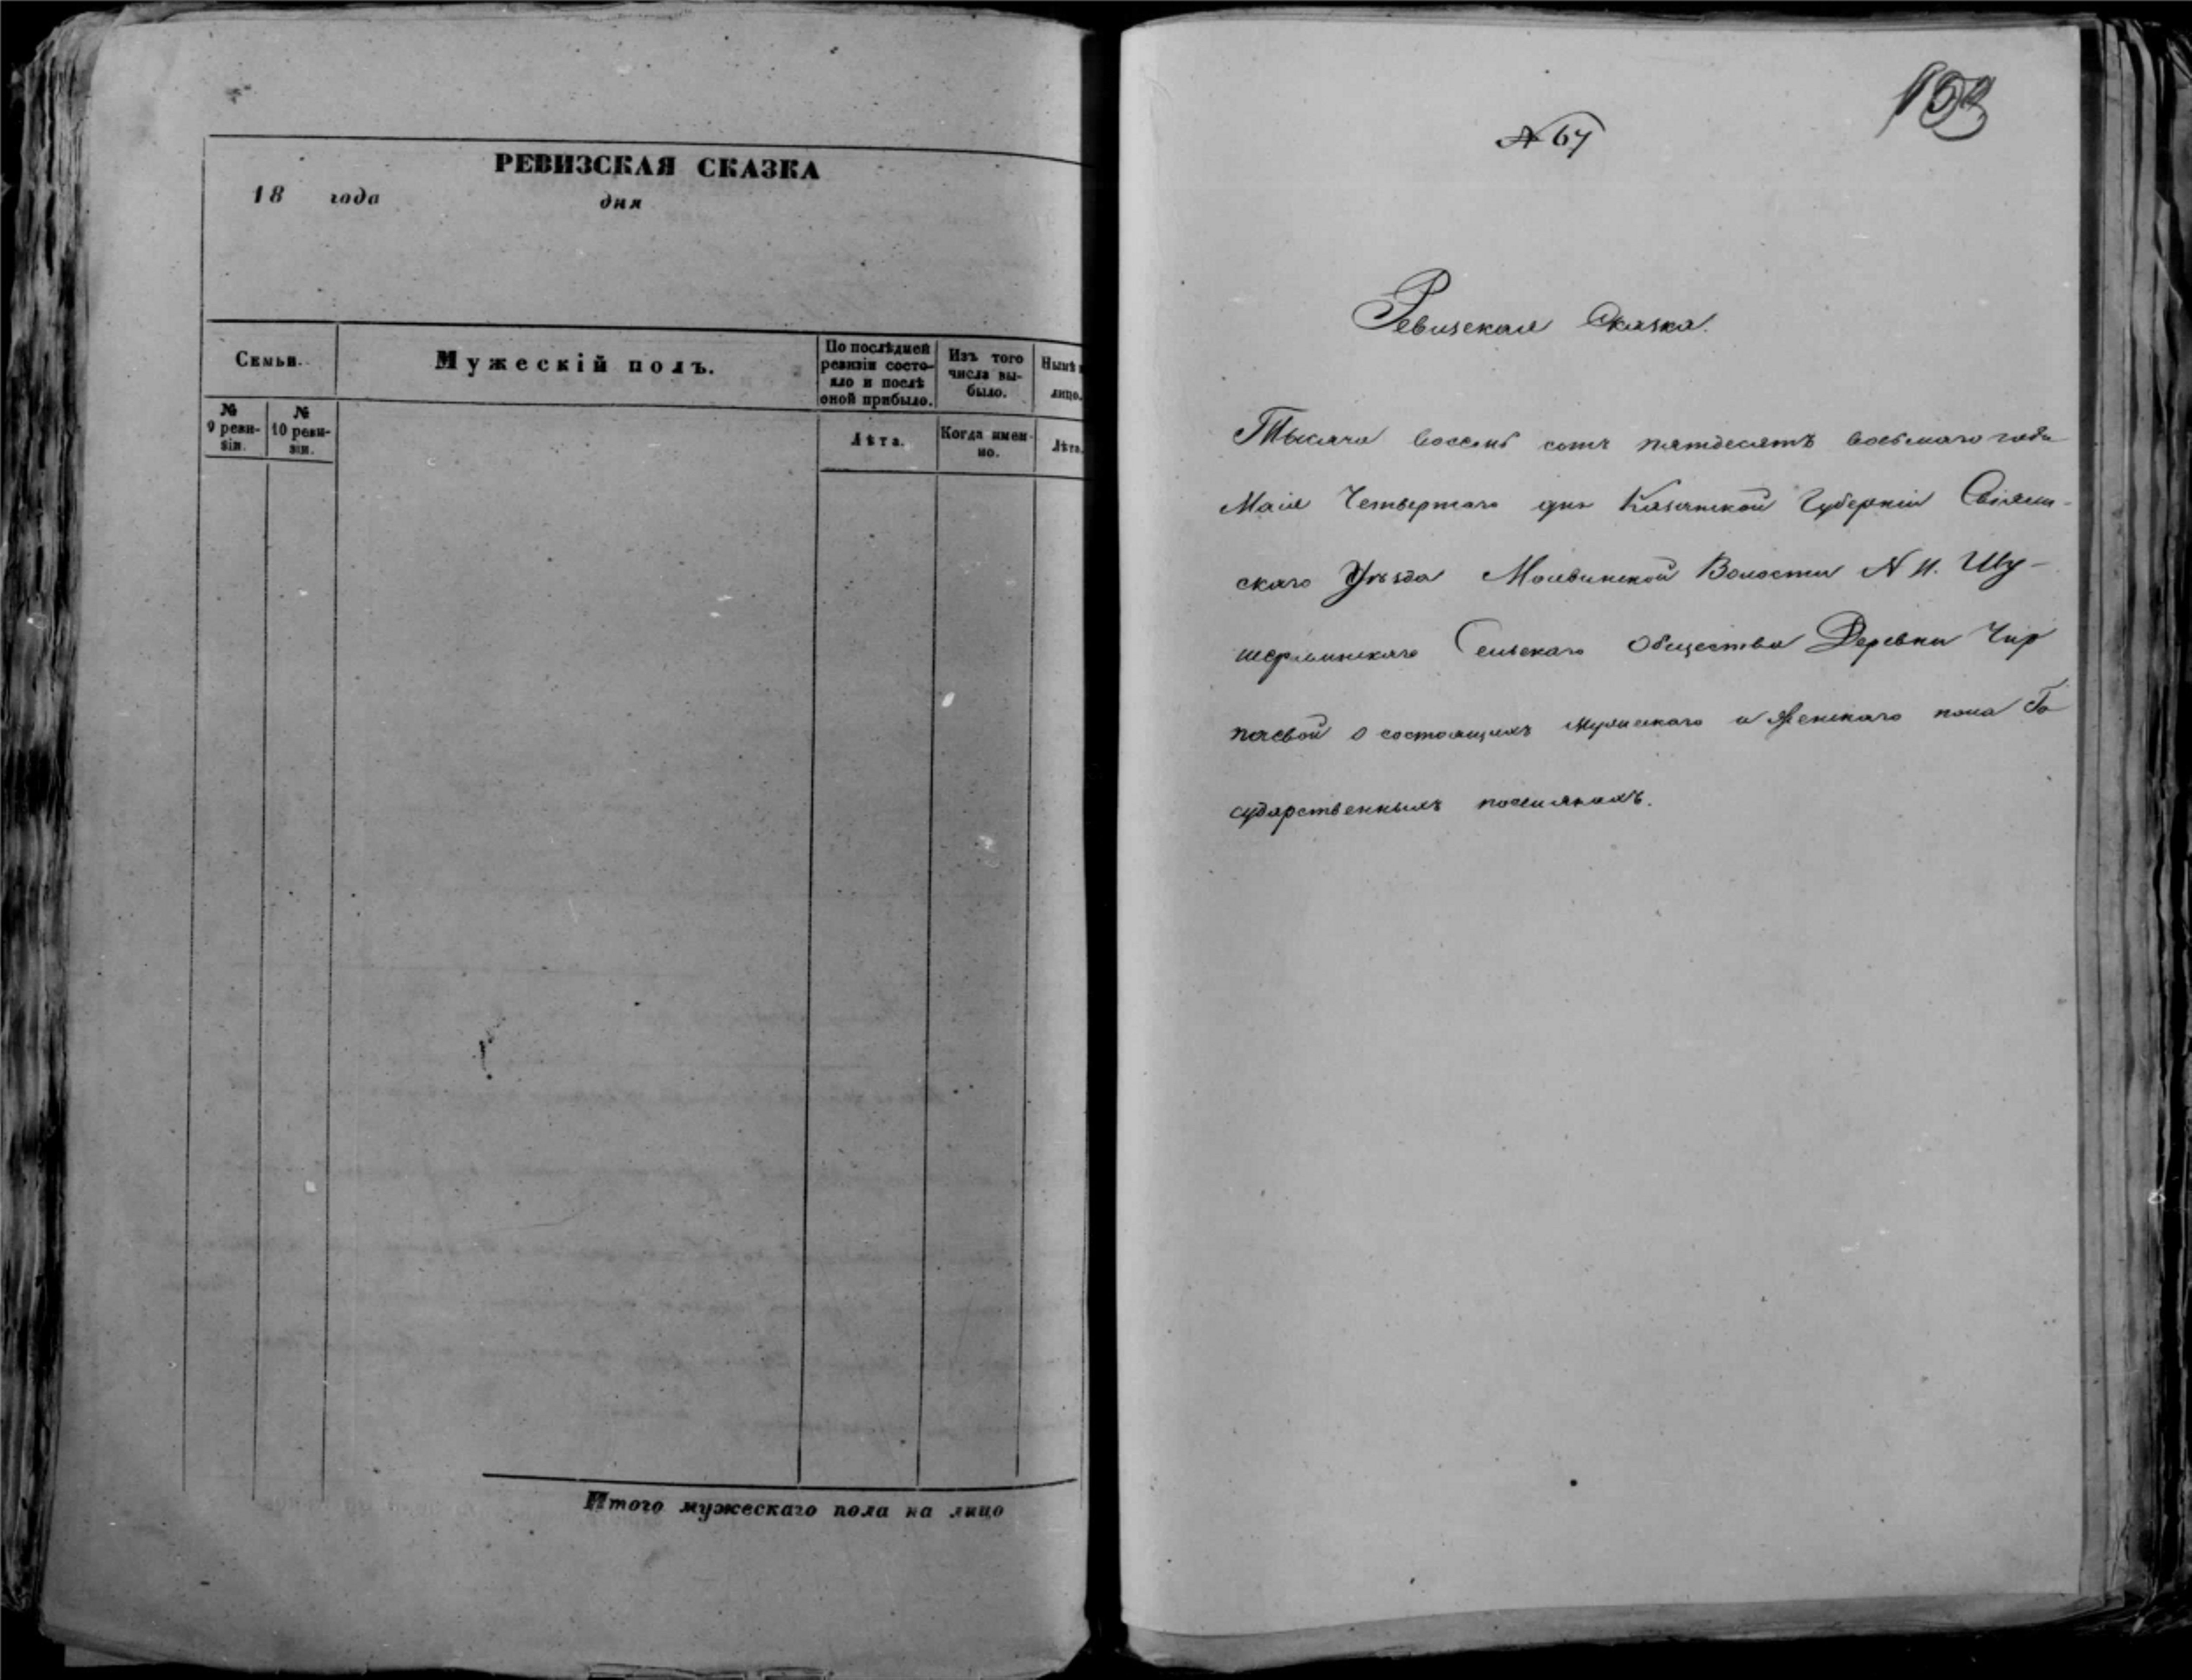 РЕВИЗСКАЯ СКАЗКА
18 года дня
Семьи.
Мужескій полъ.
По послѣдней ревизіи состояло и послѣ оной прибыло.
Изъ того числа выбыло.
Нынѣ
лицо.
№ 9 ревизіи.
№ 10 ревизіи.
Лѣта.
Когда именно.
Лѣта.
Итого мужескаго пола на лицо
№ 67
Ревизская Сказка.
Тысяча восемь сотъ пятдесятъ восьмаго года
Мая Четвертаго дня Казанской Губерніи Свіяж-
скаго Уѣзда Молвинской Волости N II. Шу-
шерминскаго Сельскаго Общества Деревни Чир
паевой о состоящихъ мужескаго и женскаго пола Го
сударственныхъ поселянахъ.